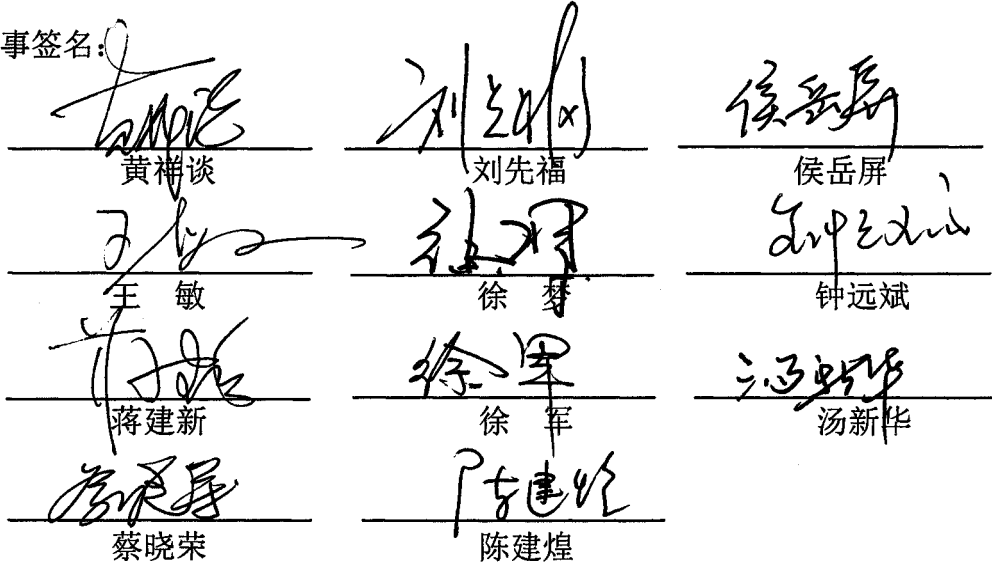 事签名：
黄祥谈 刘先福 侯岳屏
王 敏 徐 梦 钟远斌
蒋建新 徐 军 汤新华
蔡晓荣 陈建煌